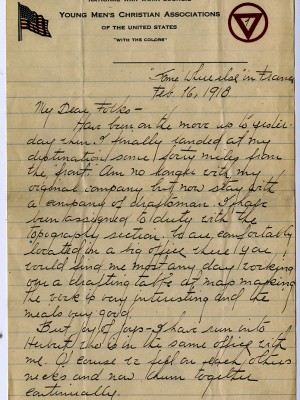 NATIONAL WAR WORK COUNCIL
YOUNG MEN'S CHRISTIAN ASSOCIATIONS
OF THE UNITED STATES
"WITH THE COLORS"
"Some where else" in France
Feb. 16, 1918
My Dear Folks—
Have been on the move up to yester-
day when I finally landed at my
destination some forty miles from
the front. Am no longer with my
original company but now stay with
a company of draftsman. I have
been assigned to duty with the
topography section. We are comfortably
located in a big office where you
would find me most any day working
on a drafting table at map making
the work is very interesting and the
meals very good.
But joy of joys - I have run into
Herbert who is in the same office with
me. Of course we fell on each others
necks and now chum together
continually.